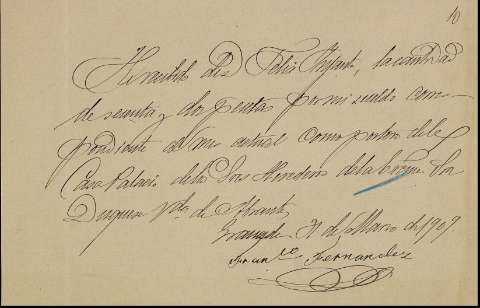 10
He recibido de Dn Felix Infante, la cantidad
de sesenta y dos pesetas por mi sueldo corres-
pondiente al mes actual como portero de la
Casa Palacio de los Sres Herederos de la Excma Sra
Duquesa Vda de Abrantes
Granada 31 de Marzo de 1909
Franco Fernandez